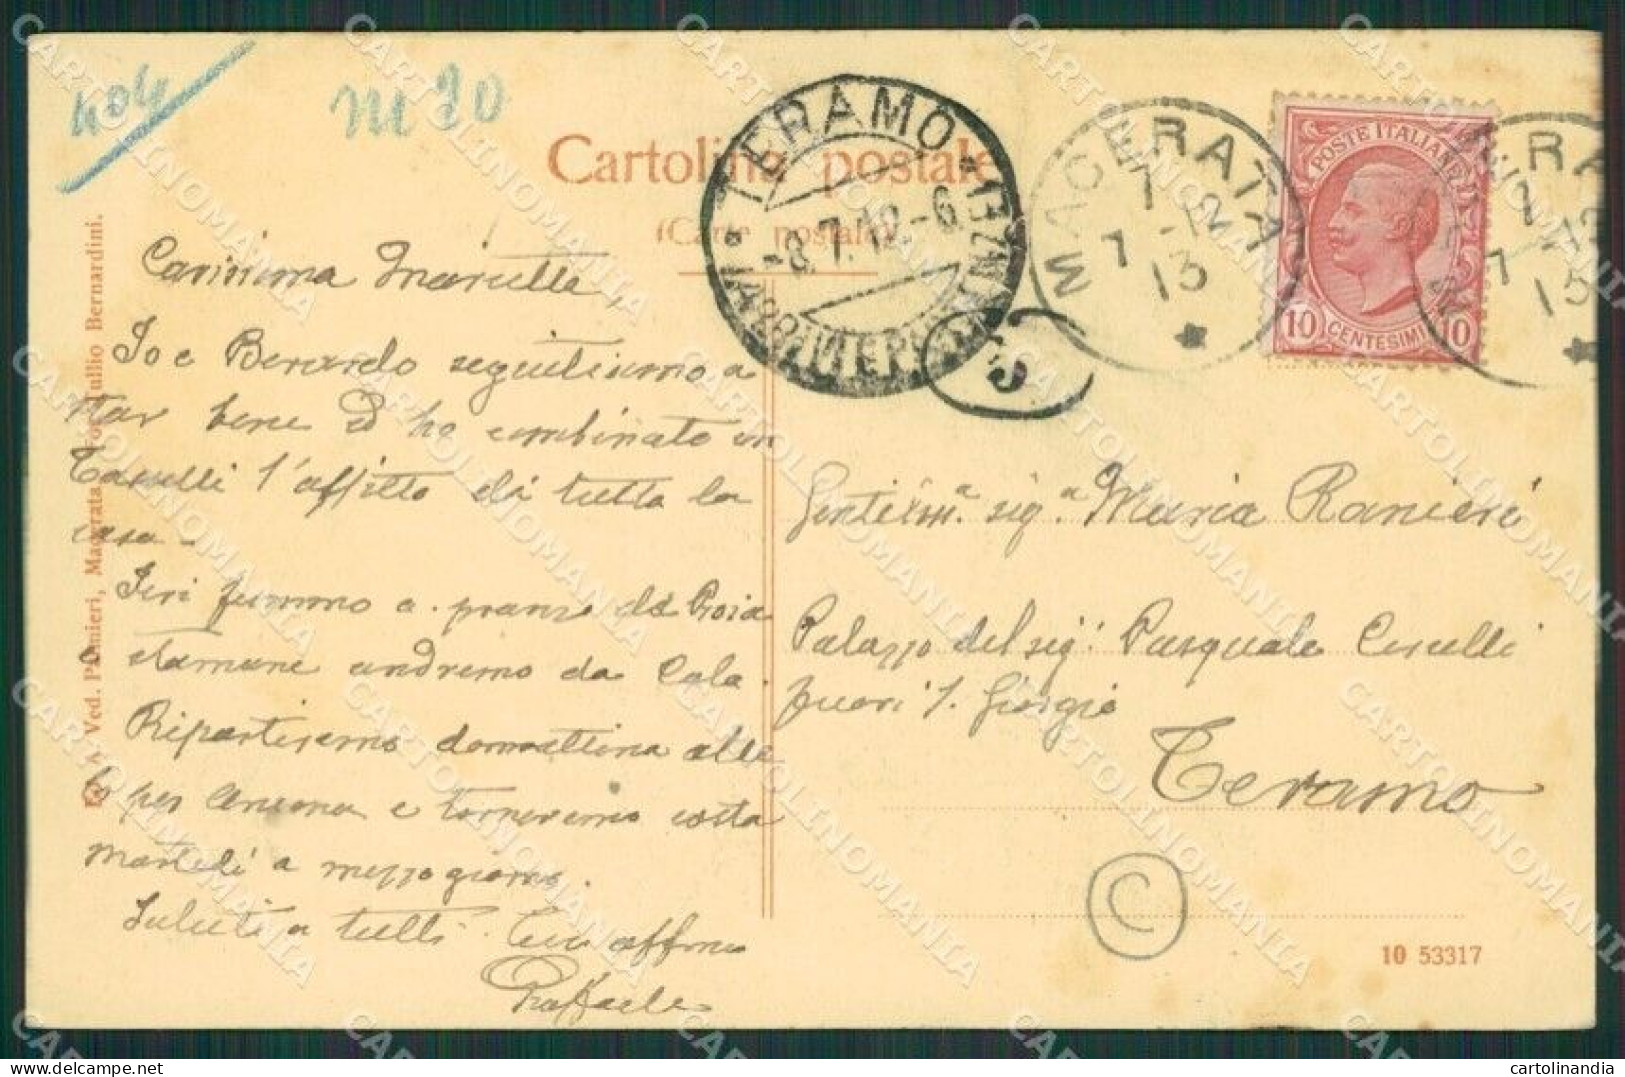 404
M 20
Cartolina postale
(Carte postale)
TERAMO
-8.7.12.-6
MACERATA
7 - 12
7
13
POSTE ITALIANE
10 CENTESIMI 10
Carissima Marietta,
Io e Berardo seguitiamo a
star bene ed ho combinato con
l'affitto di tutta la
casa -
Ieri fummo a pranzo da
stamane andremo da Cola.
Ripartiremo domattina alle
6 per Ancona e torneremo costà
Martedì a mezzogiorno.
Saluti a tutti. Tuo affmo
Raffaele
Gentilma. sig.a Maria Ranieri
Palazzo del sig: Pasquale Cerulli
fuori S. Giorgio
Teramo
Ved. P mieri, Ma rata For Tullio Bernardini.
C
10 53317
CARTOLINOMANIA
cartolinandia